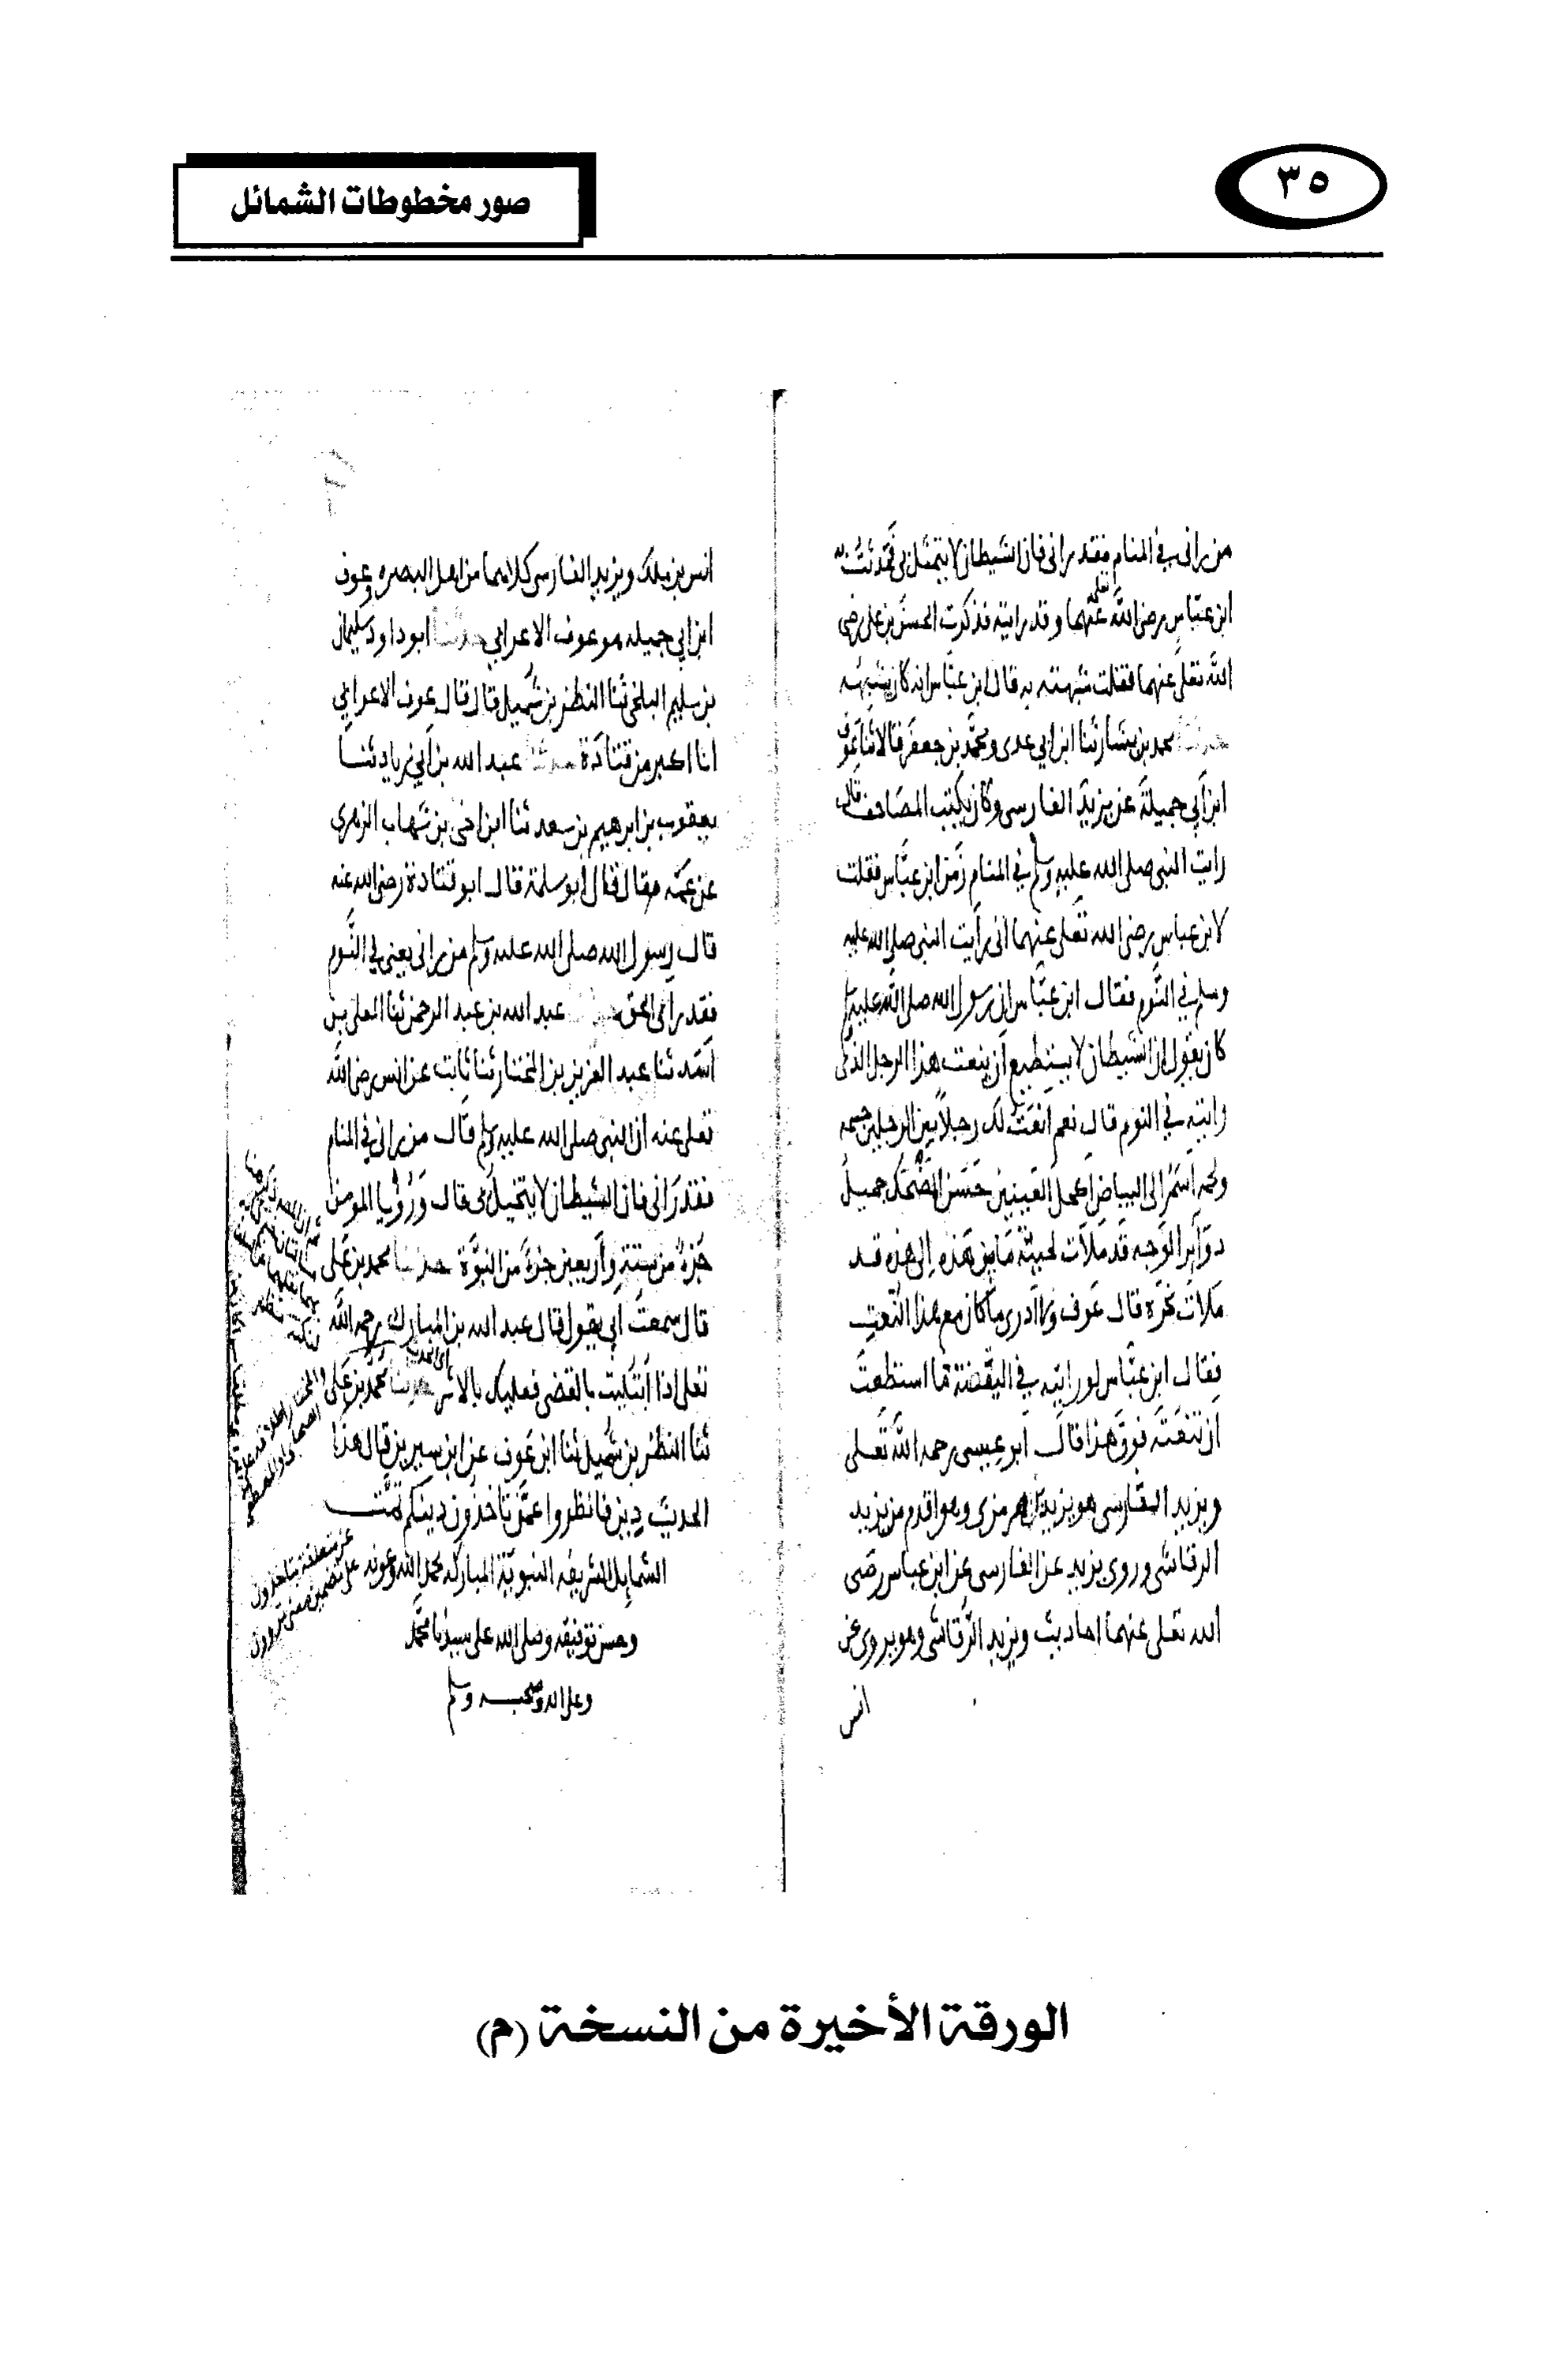 ٣٥
صور مخطوطات الشمائل
من رانى في المنام فقد رانى فان الشيطان لا يتمثل بى فحدثت به
ابن عباس رضى الله تعلى عنهما وقد رايته فذكرت الحسن بن على رضى
الله تعلى عنهما فقلت شبهته به قال ابن عباس انه كان يشبهه
حدثنا محمد بن بشار ثنا ابن ابي عدى ومحمد بن جعفر قالا ثنا عوف
ابن أبي جميلة عن يزيد الفارسى وكان يكتب المصاحف قال
رايت النبى صلى الله عليه وسلم في المنام زمن ابن عباس فقلت
لابن عباس رضى الله تعلى عنهما انى رأيت النبى صلى الله عليه
وسلم في النوم فقال ابن عباس ان رسول الله صلى الله عليه وسلم
كان يقول ان الشيطان لا يستطيع أن ينعت هذا الرجل الذى
رايته في النوم قال نعم انعت لك رجلا بين الرجلين جسمه
ولحمه اسمر الى البياض اكحل العينين حسن الضحك جميل
دوآير الوجه قد ملات لحيته ما بين هذه الى هذه قد
ملات نحره قال عوف ولا ادرى ما كان مع هذا النعت
فقال ابن عباس لو رايته في اليقضة ما استطعت
ان تنعته فوق هذا قال ابو عيسى رحمه الله تعلى
ويزيد الفارسى هو يزيد بن هرمزى وهو اقدم من يزيد
الرقاشى وروى يزيد عن الفارسى عن ابن عباس رضى
الله تعلى عنهما احاديث ويزيد الرقاشى وهو يروى عن
انس
انس بن ملك ويزيد الفارسى كلاهما من اهل البصره وعوف
ابن ابي جميله هو عوف الاعرابي حدثنا ابو داود سليمان
بن سليم البلخى ثنا النظر بن شميل قال قال عوف الاعرابي
انا اكبر من قتادة حدثنا عبد الله بن أبي زياد ثنا
يعقوب بن ابرهيم بن سعد ثنا ابن اخى بن شهاب الزهرى
عن عمه قال قال ابو سلمة قال ابو قتادة رضى الله عنه
قال رسول الله صلى الله عليه وسلم من رانى يعنى في النوم
فقد رأى الحق حدثنا عبد الله بن عبد الرحمن ثنا المعلى بن
أسد ثنا عبد العزيز بن المختار ثنا ثابت عن انس رضى الله
تعلى عنه ان النبى صلى الله عليه وسلم قال من رانى في المنام
فقد رانى فان الشيطان لا يتخيل بى قال ورؤيا المومن
جزء من ستة وأربعين جزءً من النبوة حدثنا محمد بن على
قال سمعت أبي يقول قال عبد الله بن المبارك رحمه الله
تعلى اذا ابتليت بالقضى فعليك بالاثر حدثنا محمد بن على
ثنا النظر بن شميل ثنا ابن عوف عن ابن سيرين قال هذا
الحديث دين فانظروا عمن تاخذون دينكم تمت
الشمايل الشريفه النبوية المباركه بحمد الله وعونه
وحسن توفيقه وصلى الله على سيدنا محمد
وعلى اله وصحبه وسلم
الورقة الأخيرة من النسخة (م)